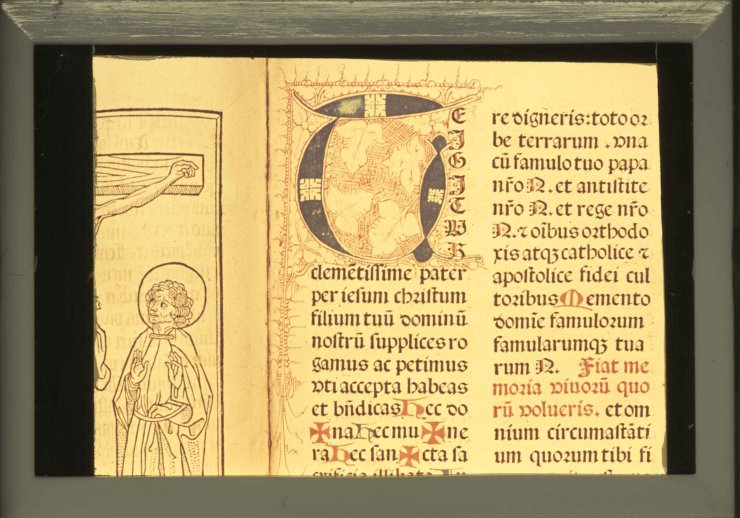 TE
I
G
I
T
V
R
clemētiſſime pater
per ieſum chriſtum
filium tuū dominū
noſtrū ſupplices ro
gamus ac petimus
vti accepta habeas
et bn̄dicas Hec do
✠ na Hec mu ✠ ne
ra Hec ſan ✠ cta ſa
crificia illibata In
re digneris: toto or
be terrarum . vna
cū famulo tuo papa
nr̄o N. et antiſtite
nr̄o N. et rege nr̄o
N. ⁊ oībus orthodo
xis atqꝫ catholice ⁊
apoſtolice fidei cul
toribus Memento
domīe famulorum
famularumqꝫ tua
rum N. Fiat me
moria viuorū quo
rū volueris. et om
nium circumaſtāti
um quorum tibi fi